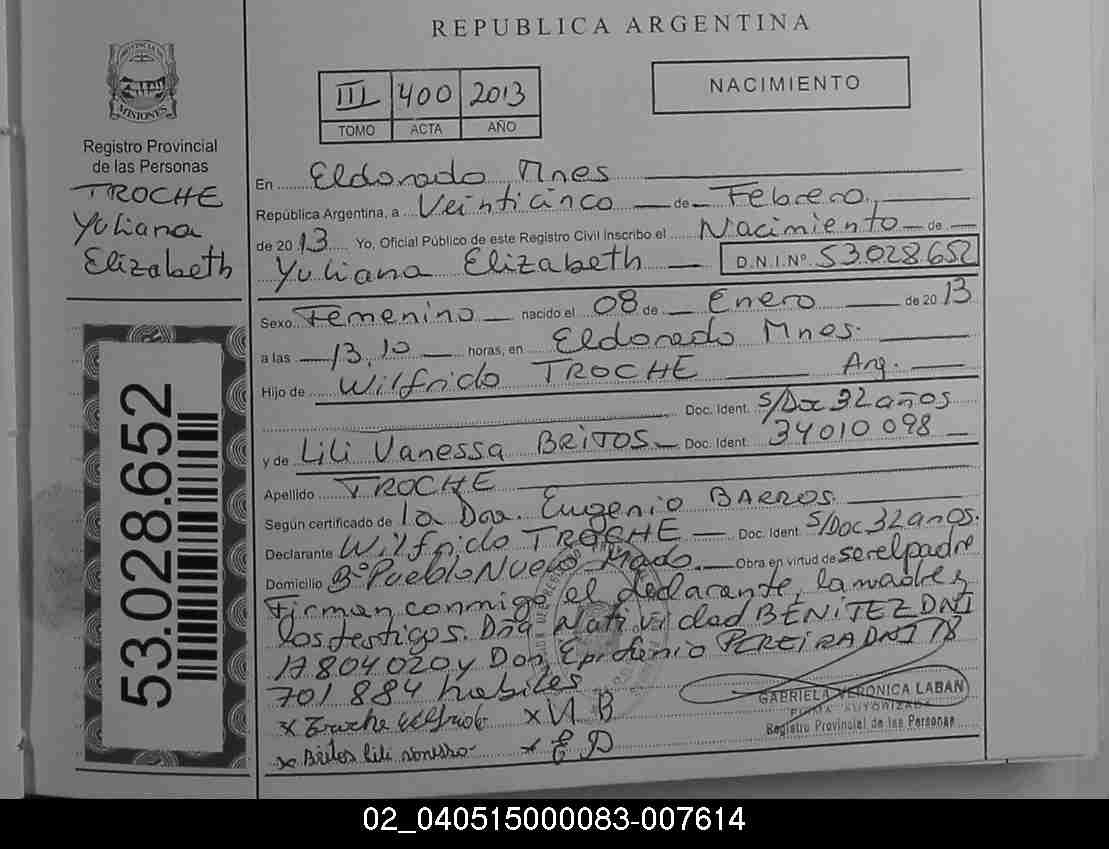 REPUBLICA ARGENTINA
PROVINCIA DE
MISIONES
Registro Provincial
de las Personas
TROCHE
Yuliana
Elizabeth
53.028.652
III 400 2013
TOMO ACTA AÑO
NACIMIENTO
En Eldorado Mnes
República Argentina, a Veinticinco de Febrero
de 2013 Yo, Oficial Público de este Registro Civil Inscribo el Nacimiento de
Yuliana Elizabeth D.N.I.Nº 53.028.652
Sexo Femenino nacido el 08 de Enero de 2013
a las 13,10 horas, en Eldorado Mnes.
Hijo de Wilfrido TROCHE Arg.
Doc. Ident. S/Doc 32 años
y de Lili Vanessa BRITOS Doc. Ident. 34010098
Apellido TROCHE
Según certificado de la Dra. Eugenio BARROS.
Declarante Wilfrido TROCHE Doc. Ident. S/Doc 32 años.
Domicilio Bº Pueblo Nuevo Mado. Obra en virtud de ser el padre
Firman conmigo el declarante, la madre y
los testigos. Dña Natividad BENITEZ DNI
17804020 y Don Epifenio PEREIRA DNI 18
701884 habiles
x Troche Wilfrido x N B
x Britos Lili vanessa x E P
GABRIELA VERONICA LABAN
FIRMA AUTORIZADA
Registro Provincial de las Personas
02_040515000083-007614